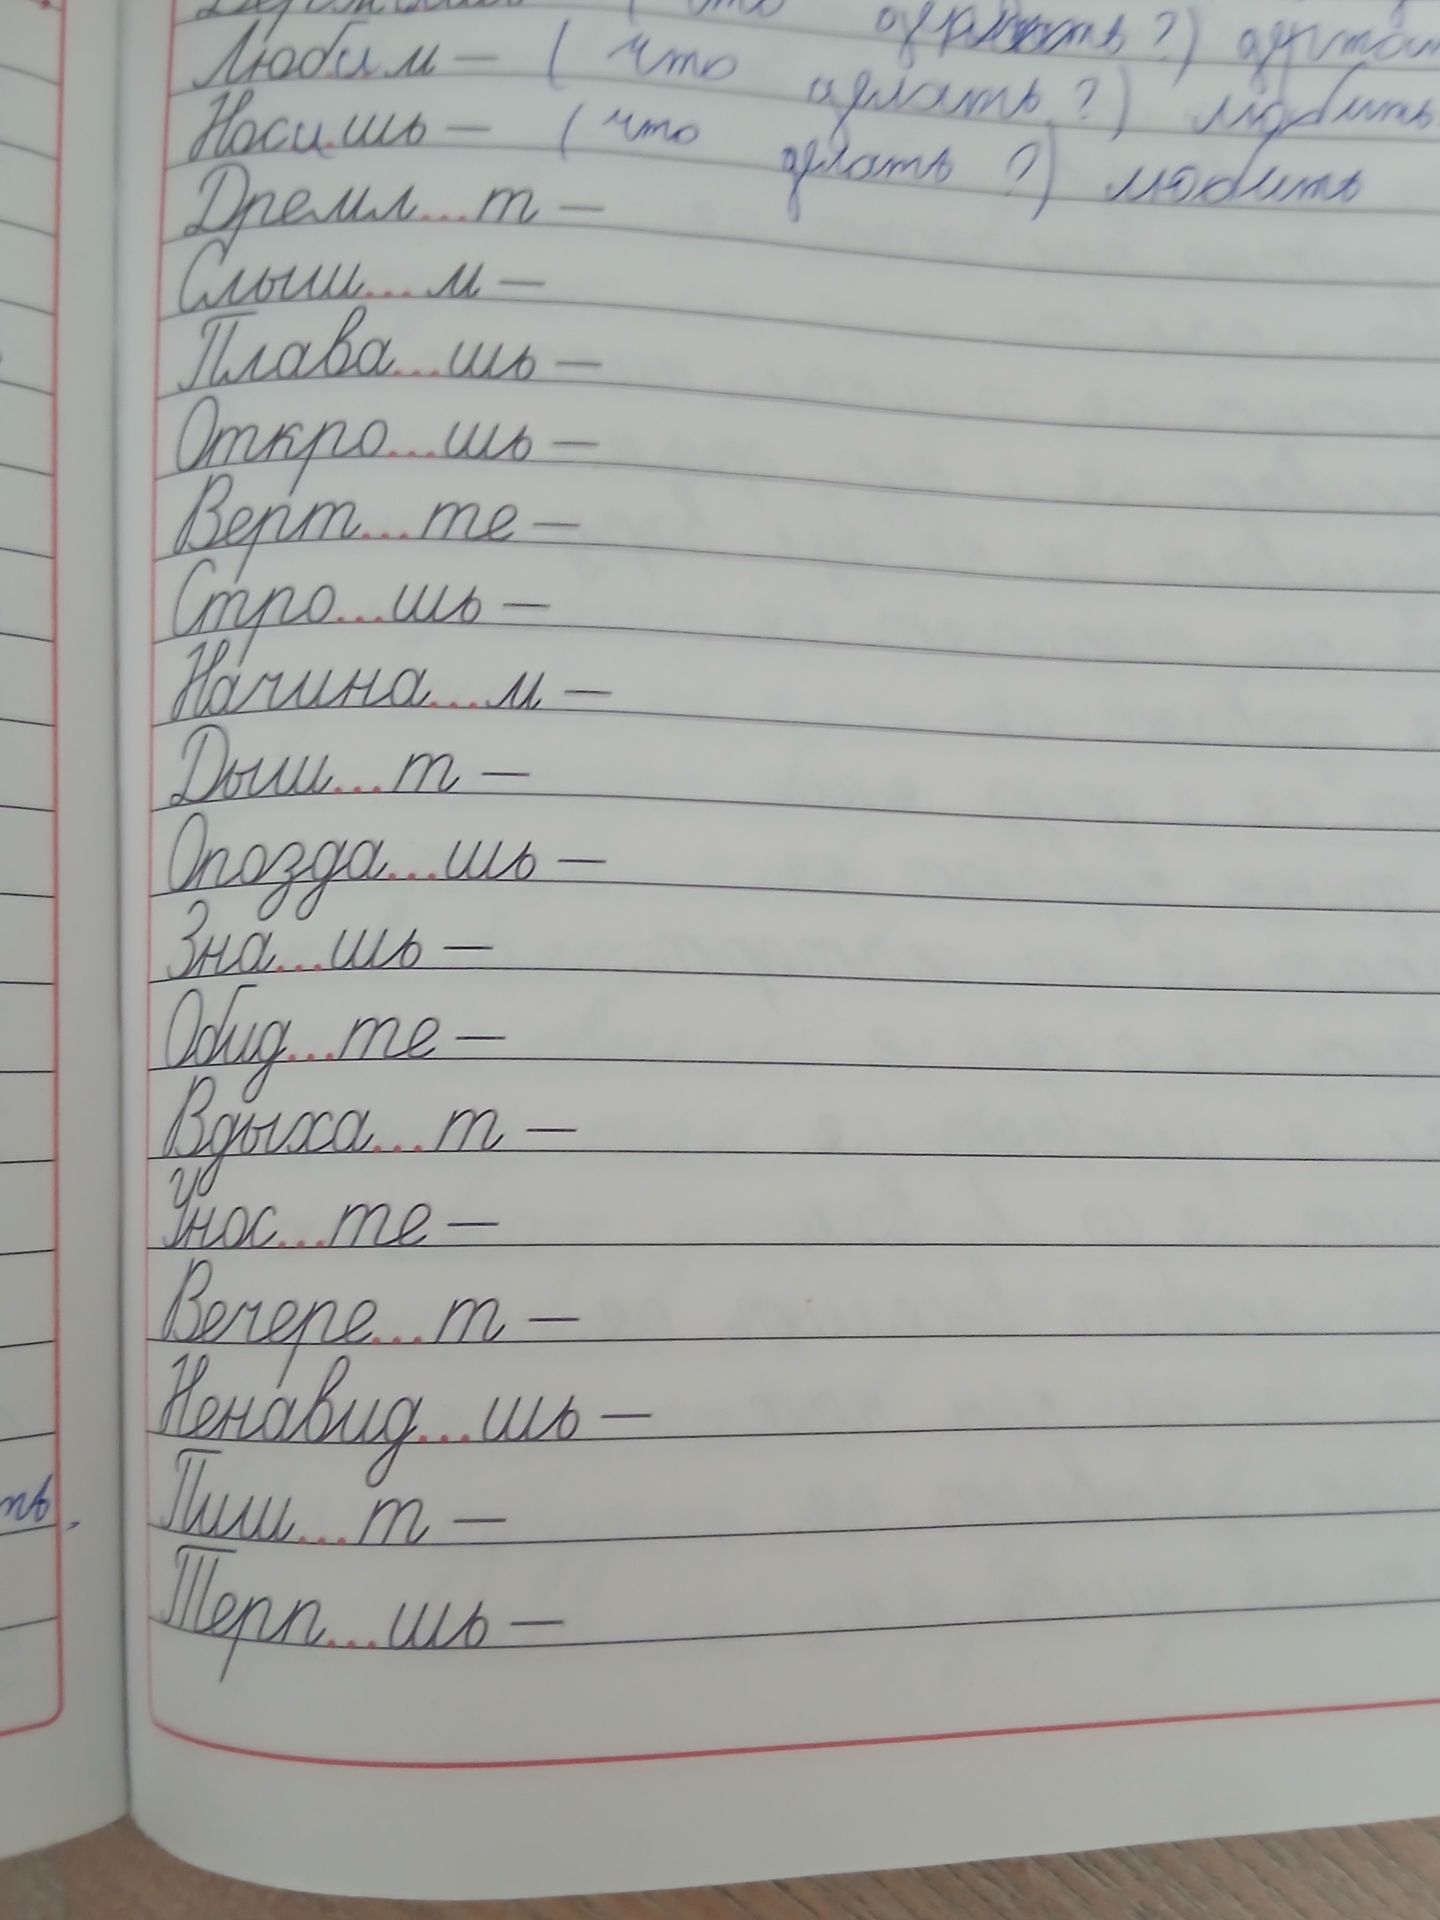 делать?)
Любим – (что делать?) любить
Носишь – (что делать?) любить
Дремл...т –
Слыш...м –
Плава...шь –
Откро...шь –
Верт...те –
Стро...шь –
Начина...м –
Дыш...т –
Опозда...шь –
Зна...шь –
Обид...те –
Вдыха...т –
Унос...те –
Вечере...т –
Ненавид...шь –
Пиш...т –
ть,
Терп...шь –